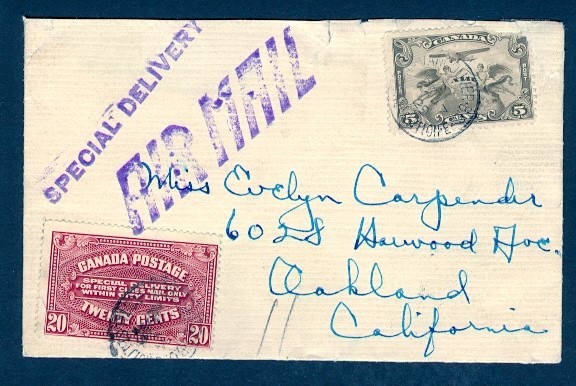 SPECIAL DELIVERY
AIR MAIL
CANADA
AIR POST
5 5
Miss Evelyn Carpender
6028 Harwood Ave.
Oakland
California
CANADA POSTAGE
SPECIAL DELIVERY
FOR FIRST CLASS MAIL ONLY
WITHIN CITY LIMITS
TWENTY CENTS
20 20